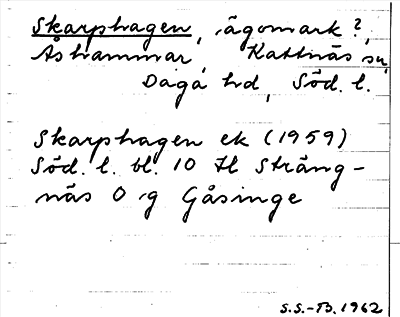 Skarphagen, ägomark?,
Åshammar, Kattnäs sn,
Daga hd, Söd. l.
Skarphagen ek (1959)
Söd. l. bl. 10 Il Sträng-
näs O g Gåsinge
S.S.-B. 1962